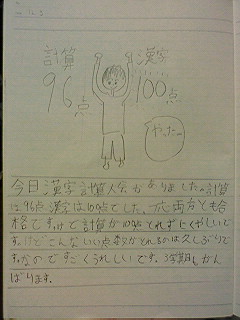 計算 漢字
96点 100点
やったー
今日漢字計算大会がありました。計算
は96点漢字は100点でした。一応両方とも合
格ですけど計算が100点とれずにくやしいで
す。けどこんないい点数がとれるのは久しぶりで
すなのですごくうれしいです。3学期もがん
ばります。